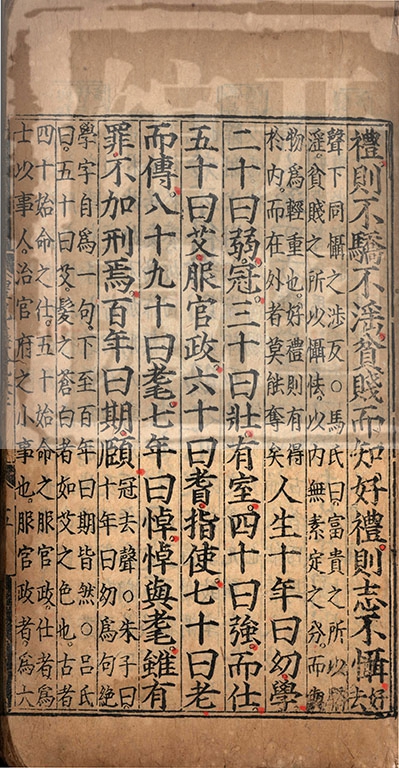 禮則不驕不淫貧賤而知好禮則志不懾好去
聲下同懾之涉反○馬氏曰富貴之所以驕
淫貧賤之所以懾怯以內無素定之分而與
物為輕重也好禮則有得
於內而在外者莫能奪矣
人生十年曰幼學
二十曰弱冠三十曰壯有室四十曰強而仕
五十曰艾服官政六十曰耆指使七十曰老
而傳八十九十曰耄七年曰悼悼與耄雖有
罪不加刑焉百年曰期頤
冠去聲○朱子曰
十年曰幼為句絕
學字自為一句下至百年曰期皆然○呂氏
曰五十曰艾髮之蒼白者如艾之色也古者
四十始命之仕五十始命之服官政仕者為
士以事人治官府之小事也服官政者為大